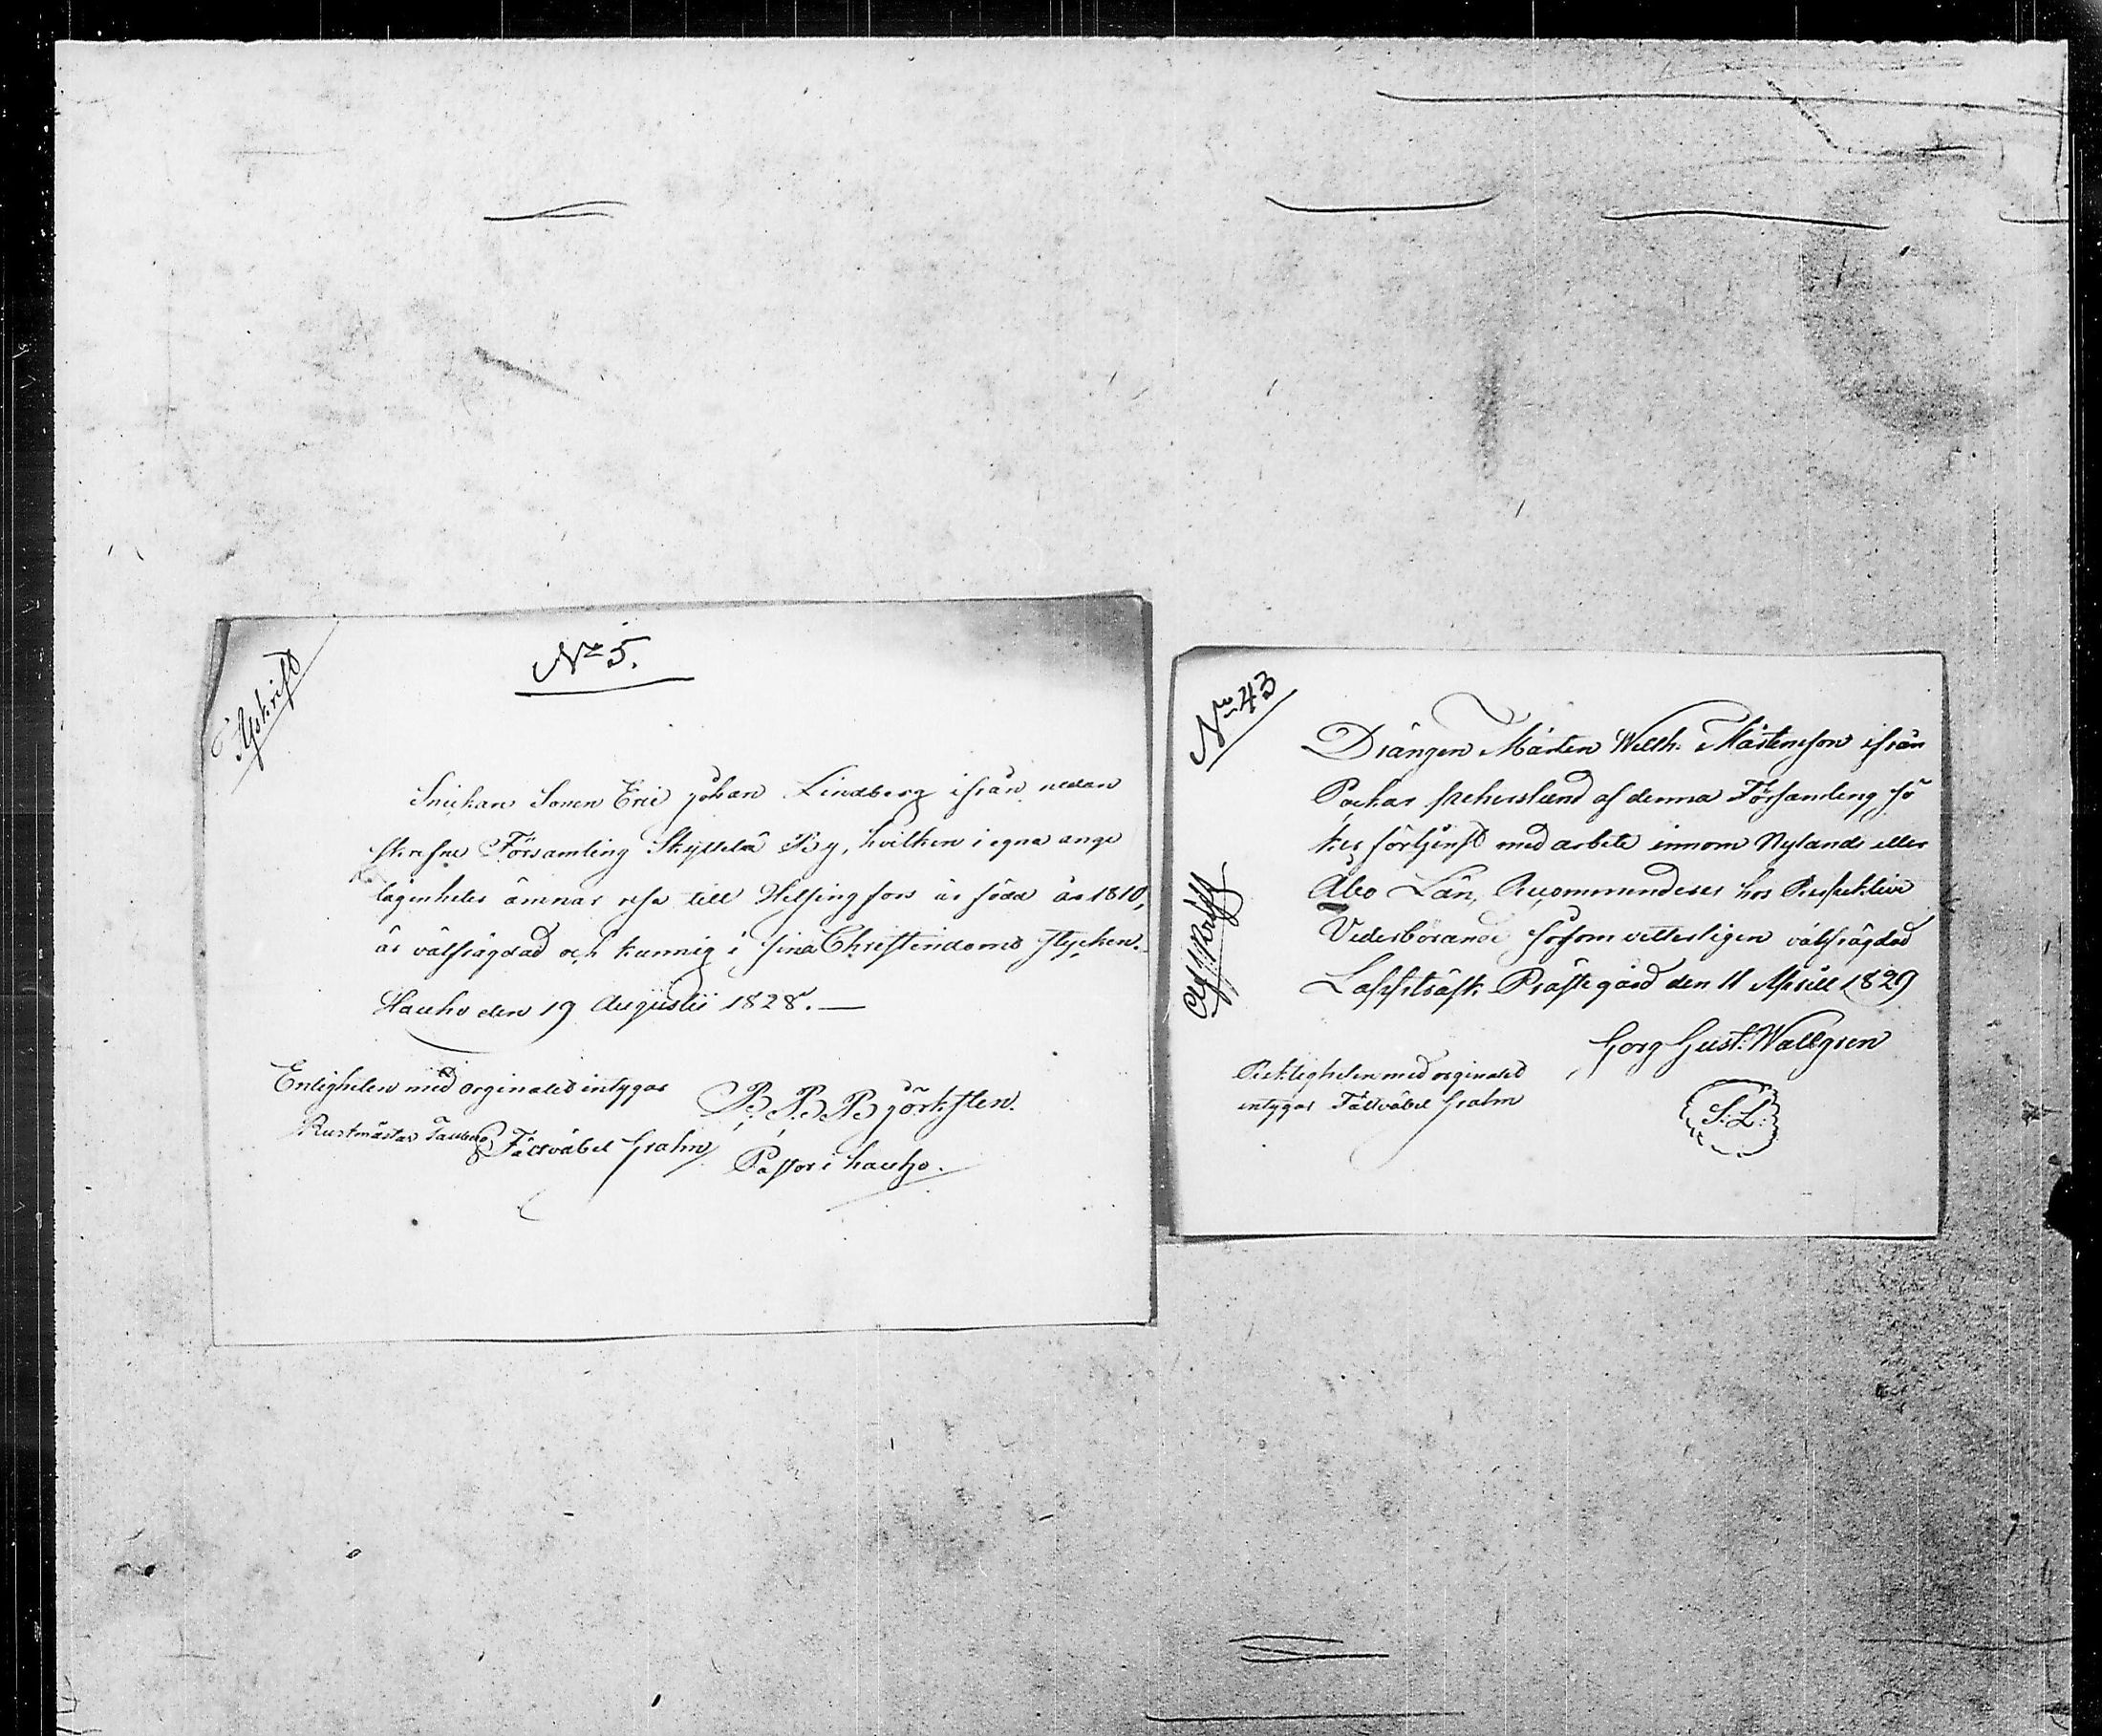 Afskrift
No 5.
Snickare Sonen Eric Johan Lindberg ifrån nedan
skrefne Församling Skyttelä By, hvilken i egna ange
lägenheter ämnar resa till Helsingfors är född år 1810,
är välfrägdad och kunnig i sina Christendoms stycken.
Hauho den 19 Augustii 1828. —
Enligheten med orginalet intygar
B. B. Björksten.
Rustmästar Tauberg Fältväbel Grahn
Pastor i hauho.
No 43
Afskrift
Drängen Mårten Willh: Mårtensson ifrån
af denna Församling sö
ker förtjenst med arbete innom Nylands eller
Åbo Län, Recommenderes hos Respektive
Vederbörande såsom vetterligen välfrägdad
Lappträsk Prästegård den 11 Aprill 1829
Georg Gust: Wallgren
Riktigheten med orginalet
intygar Fältväbel Grahn
S. L.